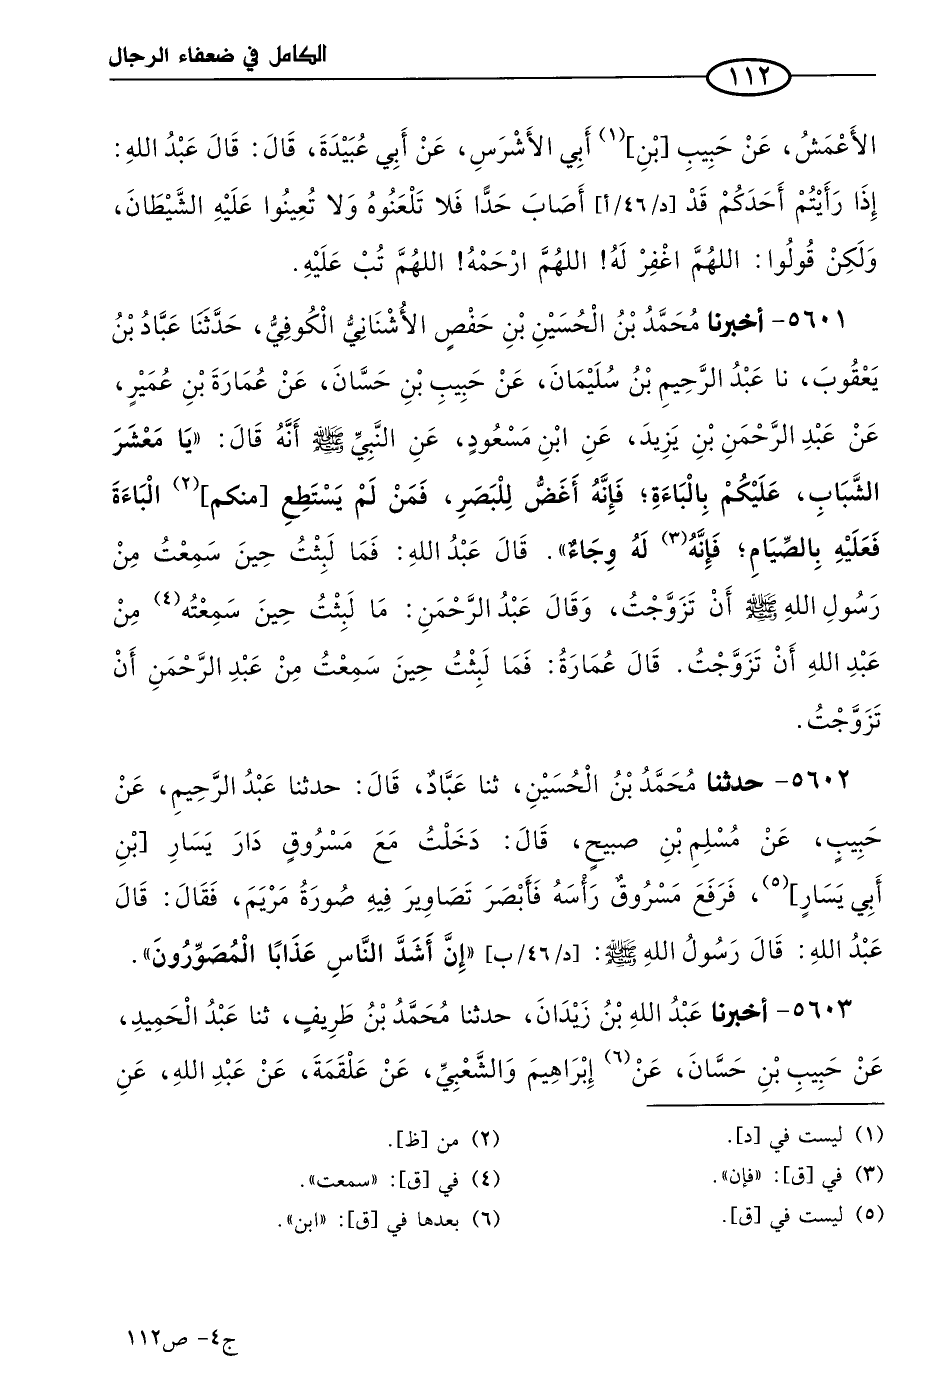 الكامل في ضعفاء الرجال
١١٢
الأَعْمَشُ، عَنْ حَبِيبِ [بْنِ](١) أَبِي الأَشْرَسِ، عَنْ أَبِي عُبَيْدَةَ، قَالَ: قَالَ عَبْدُ اللهِ:
إِذَا رَأَيْتُمْ أَحَدَكُمْ قَدْ [د/٤٦/أ] أَصَابَ حَدًّا فَلا تَلْعَنُوهُ وَلا تُعِينُوا عَلَيْهِ الشَّيْطَانَ،
وَلَكِنْ قُولُوا: اللهُمَّ اغْفِرْ لَهُ! اللهُمَّ ارْحَمْهُ! اللهُمَّ تُبْ عَلَيْهِ.
٥٦٠١- أخبرنا مُحَمَّدُ بْنُ الْحُسَيْنِ بْنِ حَفْصٍ الأُشْنَانِيُّ الْكُوفِيُّ، حَدَّثَنَا عَبَّادُ بْنُ
يَعْقُوبَ، نا عَبْدُ الرَّحِيمِ بْنُ سُلَيْمَانَ، عَنْ حَبِيبِ بْنِ حَسَّانَ، عَنْ عُمَارَةَ بْنِ عُمَيْرٍ،
عَنْ عَبْدِ الرَّحْمَنِ بْنِ يَزِيدَ، عَنِ ابْنِ مَسْعُودٍ، عَنِ النَّبِيِّ ﷺ أَنَّهُ قَالَ: «يَا مَعْشَرَ
الشَّبَابِ، عَلَيْكُمْ بِالْبَاءَةِ؛ فَإِنَّهُ أَغَضُّ لِلْبَصَرِ، فَمَنْ لَمْ يَسْتَطِعِ [منكم](٢) الْبَاءَةَ
فَعَلَيْهِ بِالصِّيَامِ؛ فَإِنَّهُ(٣) لَهُ وِجَاءٌ». قَالَ عَبْدُ اللهِ: فَمَا لَبِثْتُ حِينَ سَمِعْتُ مِنْ
رَسُولِ اللهِ ﷺ أَنْ تَزَوَّجْتُ، وَقَالَ عَبْدُ الرَّحْمَنِ: مَا لَبِثْتُ حِينَ سَمِعْتُه(٤) مِنْ
عَبْدِ اللهِ أَنْ تَزَوَّجْتُ. قَالَ عُمَارَةُ: فَمَا لَبِثْتُ حِينَ سَمِعْتُ مِنْ عَبْدِ الرَّحْمَنِ أَنْ
تَزَوَّجْتُ.
٥٦٠٢- حدثنا مُحَمَّدُ بْنُ الْحُسَيْنِ، ثنا عَبَّادٌ، قَالَ: حدثنا عَبْدُ الرَّحِيمِ، عَنْ
حَبِيبٍ، عَنْ مُسْلِمِ بْنِ صبيحٍ، قَالَ: دَخَلْتُ مَعَ مَسْرُوقٍ دَارَ يَسَارِ [بْنِ
أَبِي يَسَارٍ](٥)، فَرَفَعَ مَسْرُوقٌ رَأْسَهُ فَأَبْصَرَ تَصَاوِيرَ فِيهِ صُورَةُ مَرْيَمَ، فَقَالَ: قَالَ
عَبْدُ اللهِ: قَالَ رَسُولُ اللهِ ﷺ: [د/٤٦/ب] «إِنَّ أَشَدَّ النَّاسِ عَذَابًا الْمُصَوِّرُونَ».
٥٦٠٣- أخبرنا عَبْدُ اللهِ بْنُ زَيْدَانَ، حدثنا مُحَمَّدُ بْنُ طَرِيفٍ، ثنا عَبْدُ الْحَمِيدِ،
عَنْ حَبِيبِ بْنِ حَسَّانَ، عَنْ(٦) إِبْرَاهِيمَ وَالشَّعْبِيِّ، عَنْ عَلْقَمَةَ، عَنْ عَبْدِ اللهِ، عَنِ
(١) ليست في [د].
(٢) من [ظ].
(٣) في [ق]: «فإن».
(٤) في [ق]: «سمعت».
(٥) ليست في [ق].
(٦) بعدها في [ق]: «ابن».
ج٤- ص١١٢